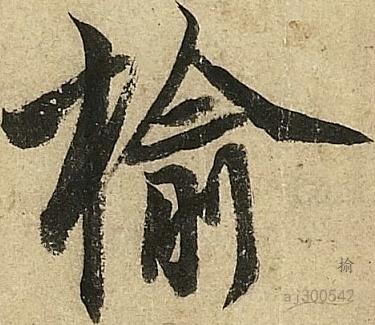 揄
揄
aj300542